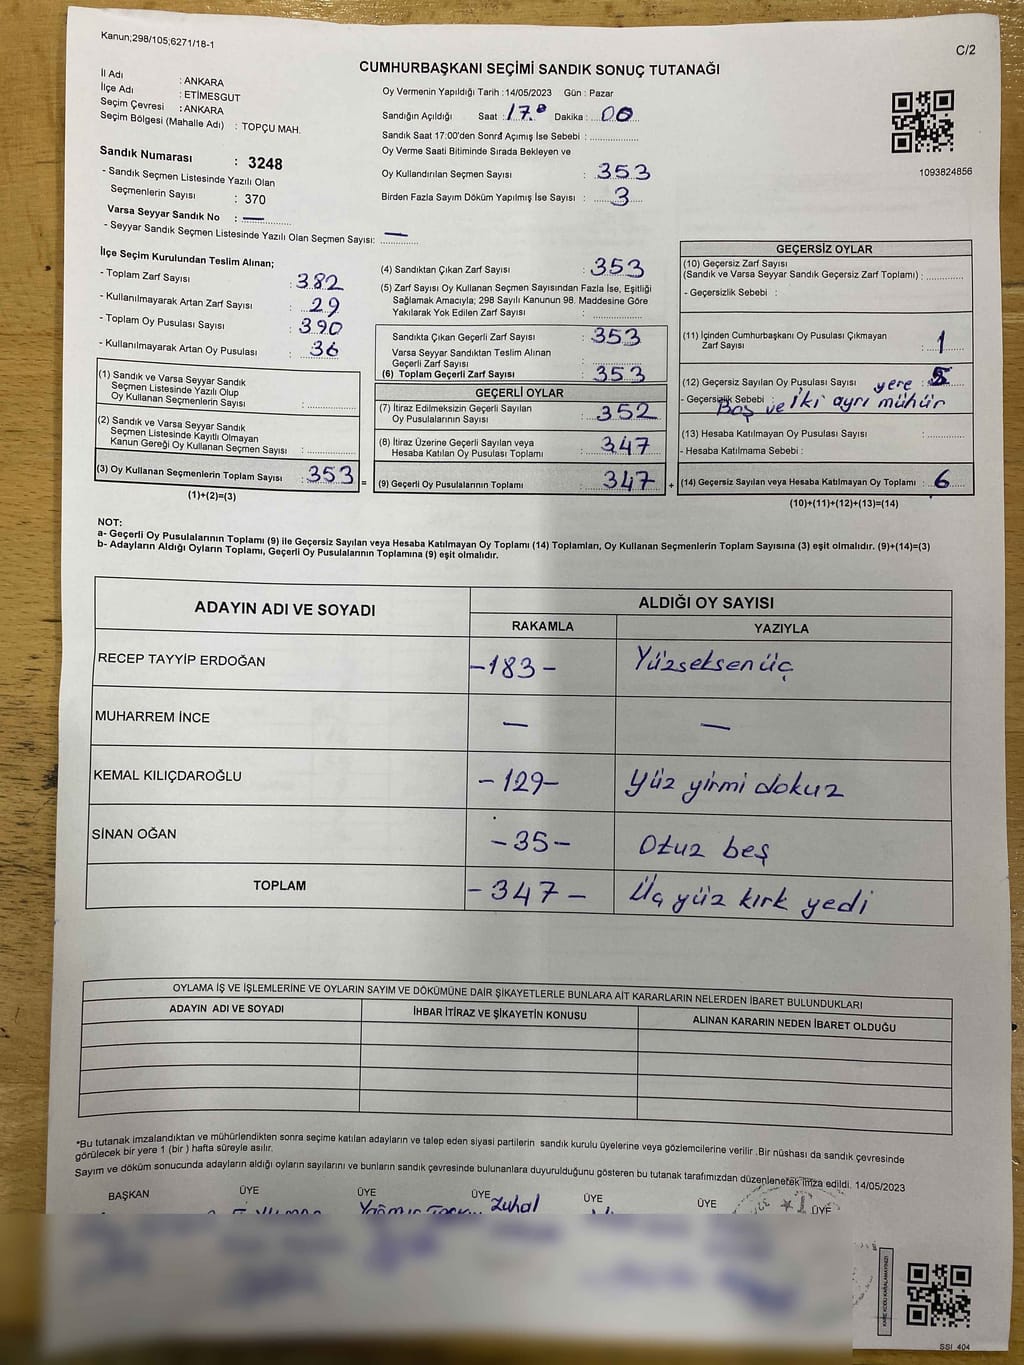 Kanun;298/105;6271/18-1
C/2
CUMHURBAŞKANI SEÇİMİ SANDIK SONUÇ TUTANAĞI
İl Adı : ANKARA
İlçe Adı : ETİMESGUT
Seçim Çevresi : ANKARA
Seçim Bölgesi (Mahalle Adı) : TOPÇU MAH.
Sandık Numarası : 3248
- Sandık Seçmen Listesinde Yazılı Olan
Seçmenlerin Sayısı : 370
Varsa Seyyar Sandık No : —
- Seyyar Sandık Seçmen Listesinde Yazılı Olan Seçmen Sayısı: —
Oy Vermenin Yapıldığı Tarih : 14/05/2023 Gün : Pazar
Sandığın Açıldığı Saat : 17.0 Dakika : 00
Sandık Saat 17:00'den Sonra Açımış İse Sebebi :
Oy Verme Saati Bitiminde Sırada Bekleyen ve
Oy Kullandırılan Seçmen Sayısı : 353
Birden Fazla Sayım Döküm Yapılmış İse Sayısı : 3
1093824856
İlçe Seçim Kurulundan Teslim Alınan;
- Toplam Zarf Sayısı : 382
- Kullanılmayarak Artan Zarf Sayısı : 29
- Toplam Oy Pusulası Sayısı : 390
- Kullanılmayarak Artan Oy Pusulası : 36
(1) Sandık ve Varsa Seyyar Sandık
Seçmen Listesinde Yazılı Olup
Oy Kullanan Seçmenlerin Sayısı :
(2) Sandık ve Varsa Seyyar Sandık
Seçmen Listesinde Kayıtlı Olmayan
Kanun Gereği Oy Kullanan Seçmen Sayısı :
(3) Oy Kullanan Seçmenlerin Toplam Sayısı : 353 =
(1)+(2)=(3)
(4) Sandıktan Çıkan Zarf Sayısı : 353
(5) Zarf Sayısı Oy Kullanan Seçmen Sayısından Fazla İse, Eşitliği
Sağlamak Amacıyla; 298 Sayılı Kanunun 98. Maddesine Göre
Yakılarak Yok Edilen Zarf Sayısı :
Sandıkta Çıkan Geçerli Zarf Sayısı : 353
Varsa Seyyar Sandıktan Teslim Alınan
Geçerli Zarf Sayısı :
(6) Toplam Geçerli Zarf Sayısı : 353
GEÇERLİ OYLAR
(7) İtiraz Edilmeksizin Geçerli Sayılan
Oy Pusulalarının Sayısı : 352
(8) İtiraz Üzerine Geçerli Sayılan veya
Hesaba Katılan Oy Pusulası Toplamı : 347
(9) Geçerli Oy Pusulalarının Toplamı : 347 +
GEÇERSİZ OYLAR
(10) Geçersiz Zarf Sayısı
(Sandık ve Varsa Seyyar Sandık Geçersiz Zarf Toplamı) :
- Geçersizlik Sebebi :
(11) İçinden Cumhurbaşkanı Oy Pusulası Çıkmayan
Zarf Sayısı : 1
(12) Geçersiz Sayılan Oy Pusulası Sayısı yere : 5
- Geçersizlik Sebebi : Boş ve İki ayrı mühür
(13) Hesaba Katılmayan Oy Pusulası Sayısı :
- Hesaba Katılmama Sebebi :
(14) Geçersiz Sayılan veya Hesaba Katılmayan Oy Toplamı : 6
(10)+(11)+(12)+(13)=(14)
NOT:
a- Geçerli Oy Pusulalarının Toplamı (9) ile Geçersiz Sayılan veya Hesaba Katılmayan Oy Toplamı (14) Toplamları, Oy Kullanan Seçmenlerin Toplam Sayısına (3) eşit olmalıdır. (9)+(14)=(3)
b- Adayların Aldığı Oyların Toplamı, Geçerli Oy Pusulalarının Toplamına (9) eşit olmalıdır.
ADAYIN ADI VE SOYADI
ALDIĞI OY SAYISI
RAKAMLA
YAZIYLA
RECEP TAYYİP ERDOĞAN -183- Yüzseksenüç
MUHARREM İNCE — —
KEMAL KILIÇDAROĞLU -129- Yüz yirmi dokuz
SİNAN OĞAN -35- Otuz beş
TOPLAM -347- Üç yüz kırk yedi
OYLAMA İŞ VE İŞLEMLERİNE VE OYLARIN SAYIM VE DÖKÜMÜNE DAİR ŞİKAYETLERLE BUNLARA AİT KARARLARIN NELERDEN İBARET BULUNDUKLARI
ADAYIN ADI VE SOYADI
İHBAR İTİRAZ VE ŞİKAYETİN KONUSU
ALINAN KARARIN NEDEN İBARET OLDUĞU
*Bu tutanak imzalandıktan ve mühürlendikten sonra seçime katılan adayların ve talep eden siyasi partilerin sandık kurulu üyelerine veya gözlemcilerine verilir .Bir nüshası da sandık çevresinde
görülecek bir yere 1 (bir ) hafta süreyle asılır.
Sayım ve döküm sonucunda adayların aldığı oyların sayılarını ve bunların sandık çevresinde bulunanlara duyurulduğunu gösteren bu tutanak tarafımızdan düzenlenerek imza edildi. 14/05/2023
BAŞKAN ÜYE ÜYE ÜYE ÜYE ÜYE ÜYE
Zuhal
KARE KODU KARALAMAYINIZ!
SSİ 404